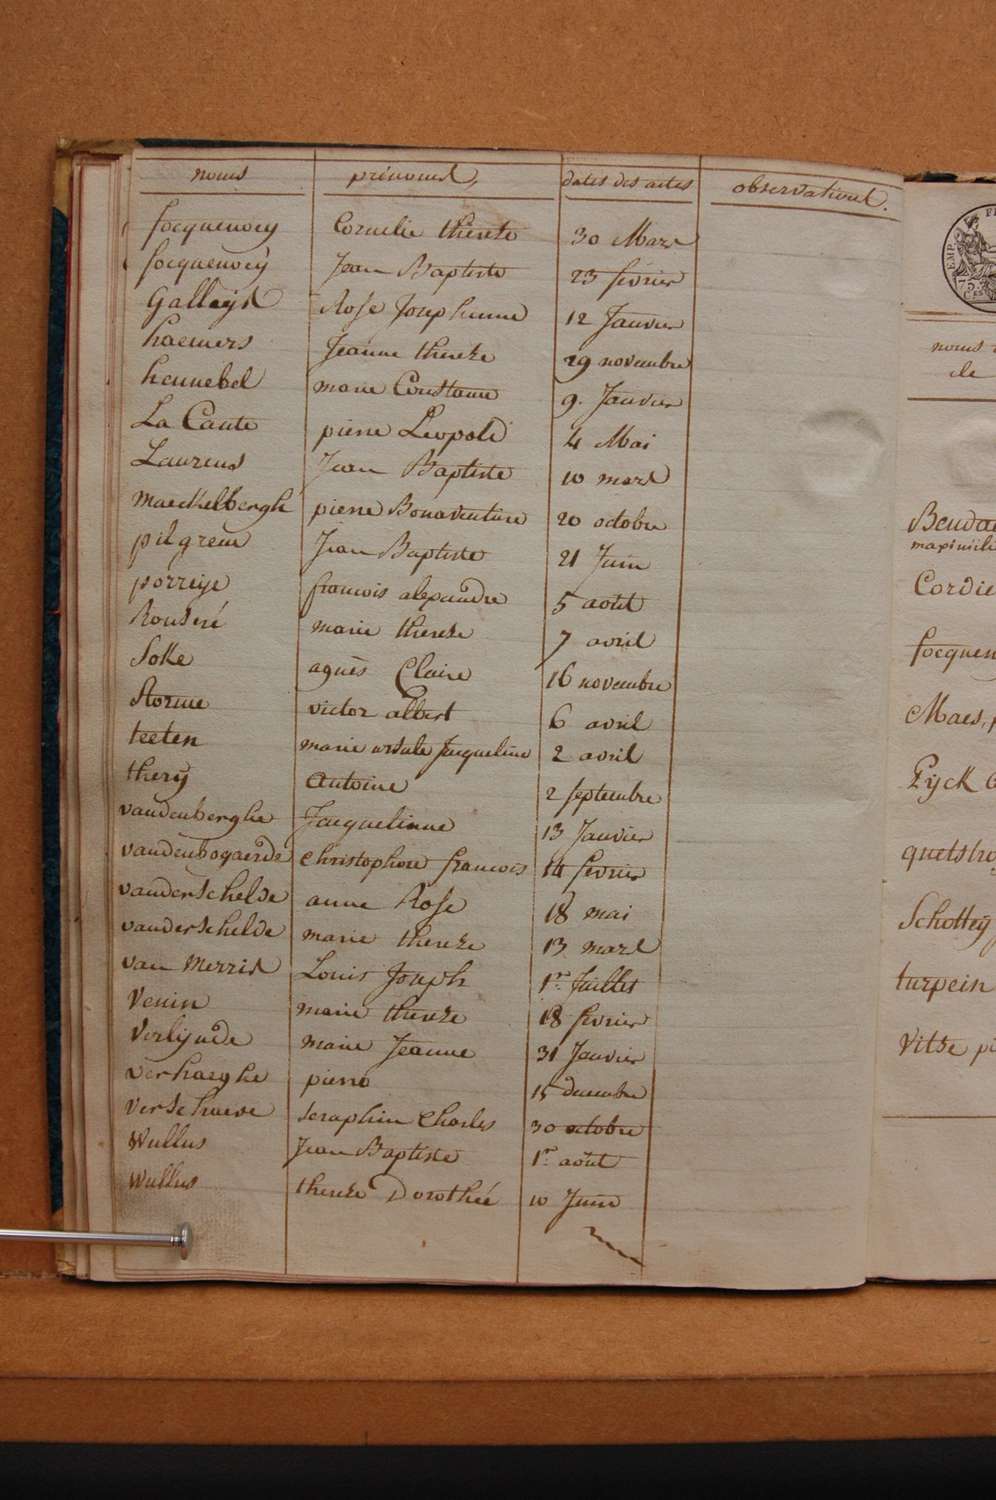 noms prénoms, dates des actes observations.
focquenoey Cornelie thereze 30 Mars
focquenoey Jean Baptiste 23 février
Galleijs Rose Josephinne 12 Janvier
haemers Jeanne thereze 29 novembre
hennebel marie Constanne 9. Janvier
La Cante pierre Léopold 4 Mai
Laurens Jean Baptiste 10 mars
maeckelbergh pierre Bonaventure 20 octobre
pilgrem Jean Baptiste 21 Juin
porreije francois alexandre 5 août
Rouseré marie thereze 7 avril
Soke agnès Claire 16 novembre
Storme victor albert 6 avril
teeten marie ursule Jacqueline 2 avril
therij antoine 2 septembre
vandenberghe Jacquelinne 13 Janvier
vandenbogaerde christophore francois 14 fevrier
vanderschelde anne Rose 18 mai
vanderschelde marie thereze 13 mars
van merris Louis Joseph 1er Juillet
Venin marie thereze 18 fevrier
Verlijnde marie Jeanne 31 Janvier
verhaeghe pierre 15 decembre
verschaeve seraphin charles 30 octobre
Wullus Jean Baptiste 1er août
Wullus thereze Dorothée 10 Juin
EMP. FR
75.
CES
noms
de
maximili
Cordie
focquen
Maes, p
Pyck
quetstro
Schottey
turpein
Vitse pi